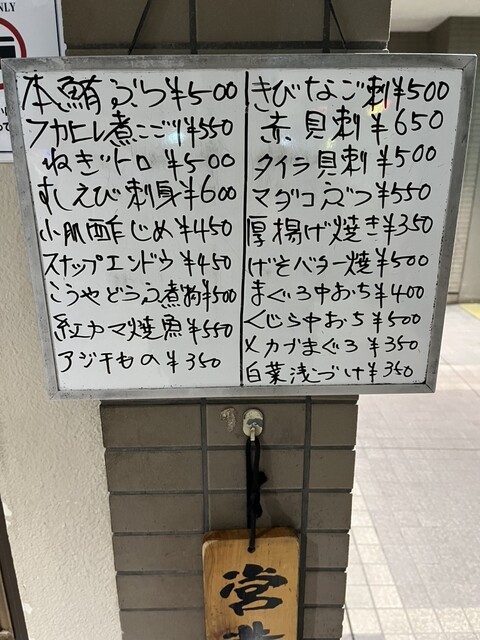 本鮪ぶつ¥500
フカヒレ煮こごり¥550
ねぎトロ ¥500
すしえび刺身¥600
小肌酢じめ¥450
スナップエンドウ¥450
こうやどうふ煮物¥500
紅カマ焼魚¥550
アジ干もの¥350
きびなご刺¥500
赤貝刺¥650
タイラ貝刺¥500
マダコぶつ¥550
厚揚げ焼き¥350
げそバター焼¥500
まぐろ中おち¥400
くじら中おち¥500
メカブまぐろ¥350
白菜浅づけ¥350
NLY
営業